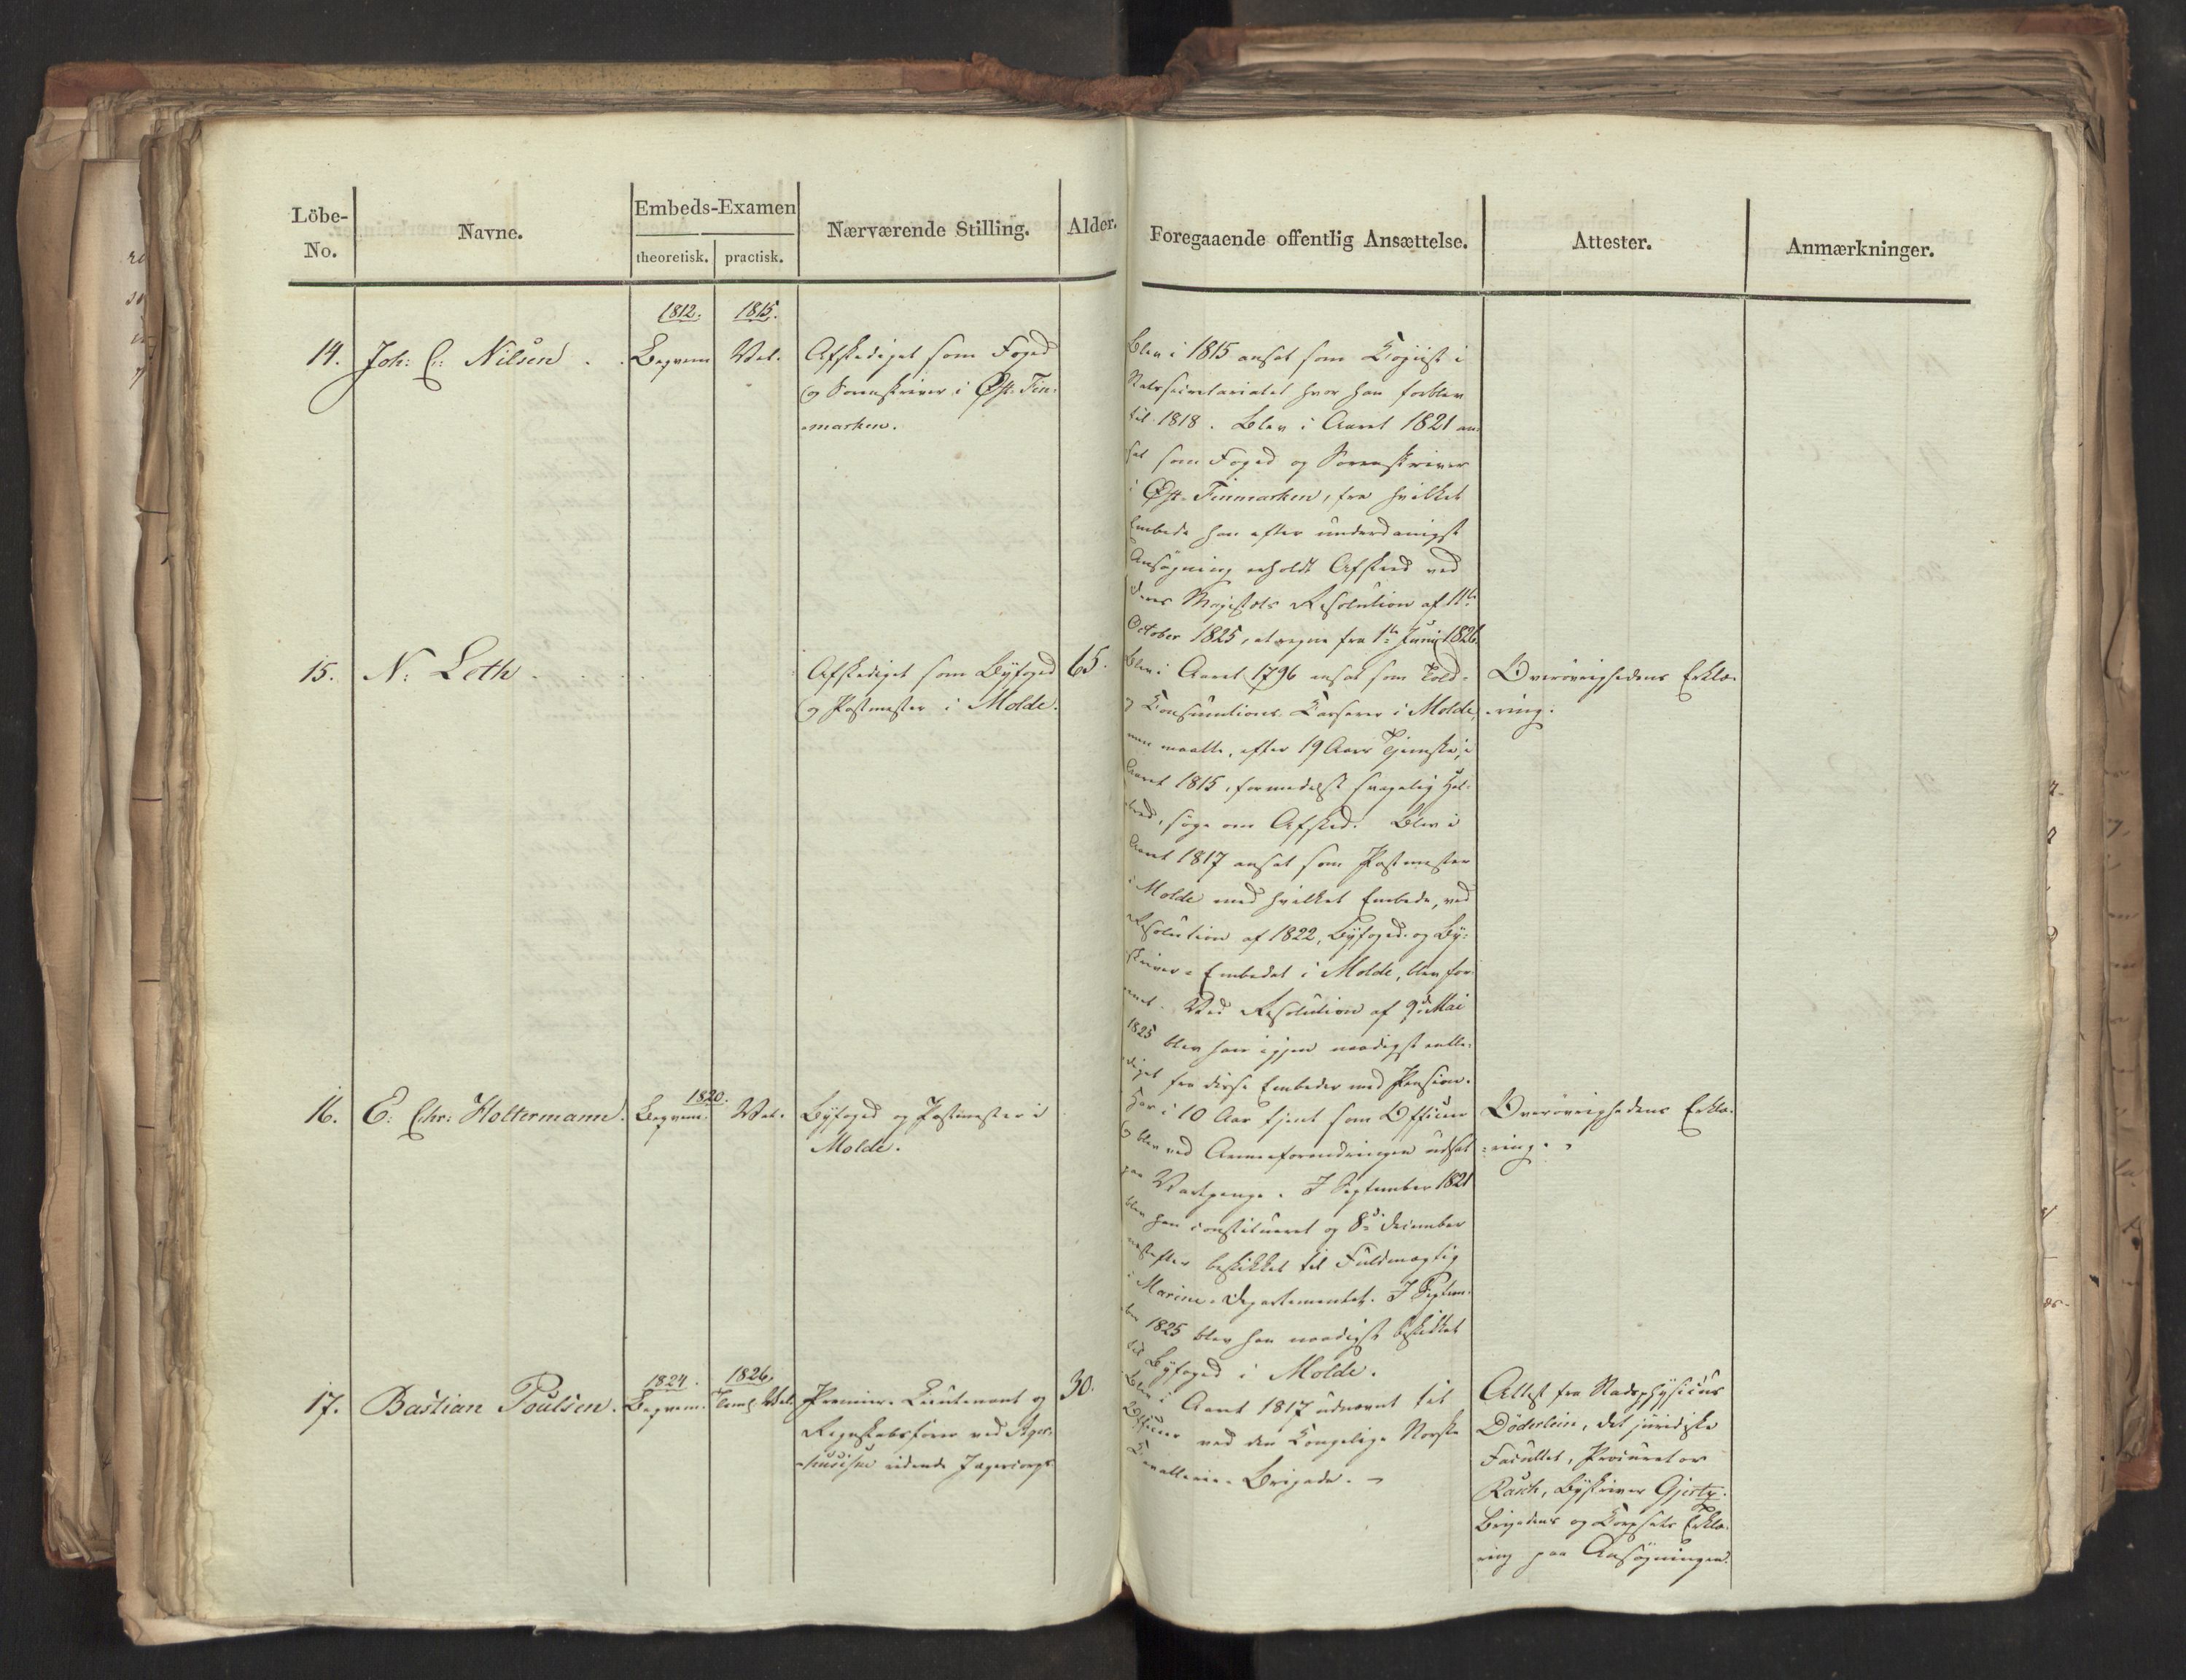 Löbe-
No.
Navne.
Embeds-Examen
theoretisk.
practisk.
Nærværende Stilling.
Alder.
Foregaaende offentlig Ansættelse.
Attester.
Anmærkninger.
1812. 1815.
14. Joh: C: Nilsen . . Beqvem Vel. Afskediget som Foged
og Sorenskriver i Øst-Fin-
marken.
Blev i 1815 ansat som Copiist i
Statssecretariatet hvor han forblev
til 1818. Blev i Aaret 1821 an-
sat som Foged og Sorenskriver
i Øst-Finmarken, fra hvilket
Embede han efter underdanigst
Ansøgning erholdt Afsked ved
Deres Majestæts Resolution af 11te
October 1825, at regne fra 1te Junii 1826.
15. N: Leth . . . . . Afskediget som Byfoged 65.
og Postmester i Molde.
Blev i Aaret 1796 ansat som Told-
og Consumtions-Casserer i Molde,
men maatte, efter 19 Aars Tjeneste, i
Aaret 1815, formedelst svagelig Hel-
bred, søge om Afsked. Blev i
Aaret 1817 ansat som Postmester
i Molde med hvilket Embede, ved
Resolution af 1822, Byfoged- og By-
skriver-Embedet i Molde, blev for-
enet. Ved Resolution af 9de Mai
1825 blev han igjen naadigst entle-
diget fra disse Embeder med Pension.
Overøvrighedens Erklæ-
ring.
1820.
16. E: Chr: Holtermann. Beqvem. Vel. Byfoged og Postmester i
Molde.
Har i 10 Aar tjent som Officeer
og blev ved Armeeforandringen udsat
paa Vartpenge. I September 1821
blev han constitueret og 8de December
næstefter beskikket til Fuldmægtig
i Marine-Departementet. I Septem-
ber 1825 blev han naadigst beskikket
til Byfoged i Molde.
Overøvrighedens Erklæ-
ring.
1824. 1826.
17. Bastian Poulsen. Beqvem. Temlig Vel. Premier-Lieutenant og 30.
Regnskabsfører ved Agers-
huusiske ridende Jægercorps
Blev i Aaret 1817 udnævnt til
Officeer ved den Kongelige Norske
Cavallerie-Brigade.
Attest fra Stadsphysicus
Döderlein, det juridiske
Facultet, Procurator
Rasch, Byskriver Gjertz.
Brigadens og Corpsets Erklæ-
ring paa Ansøgningen.